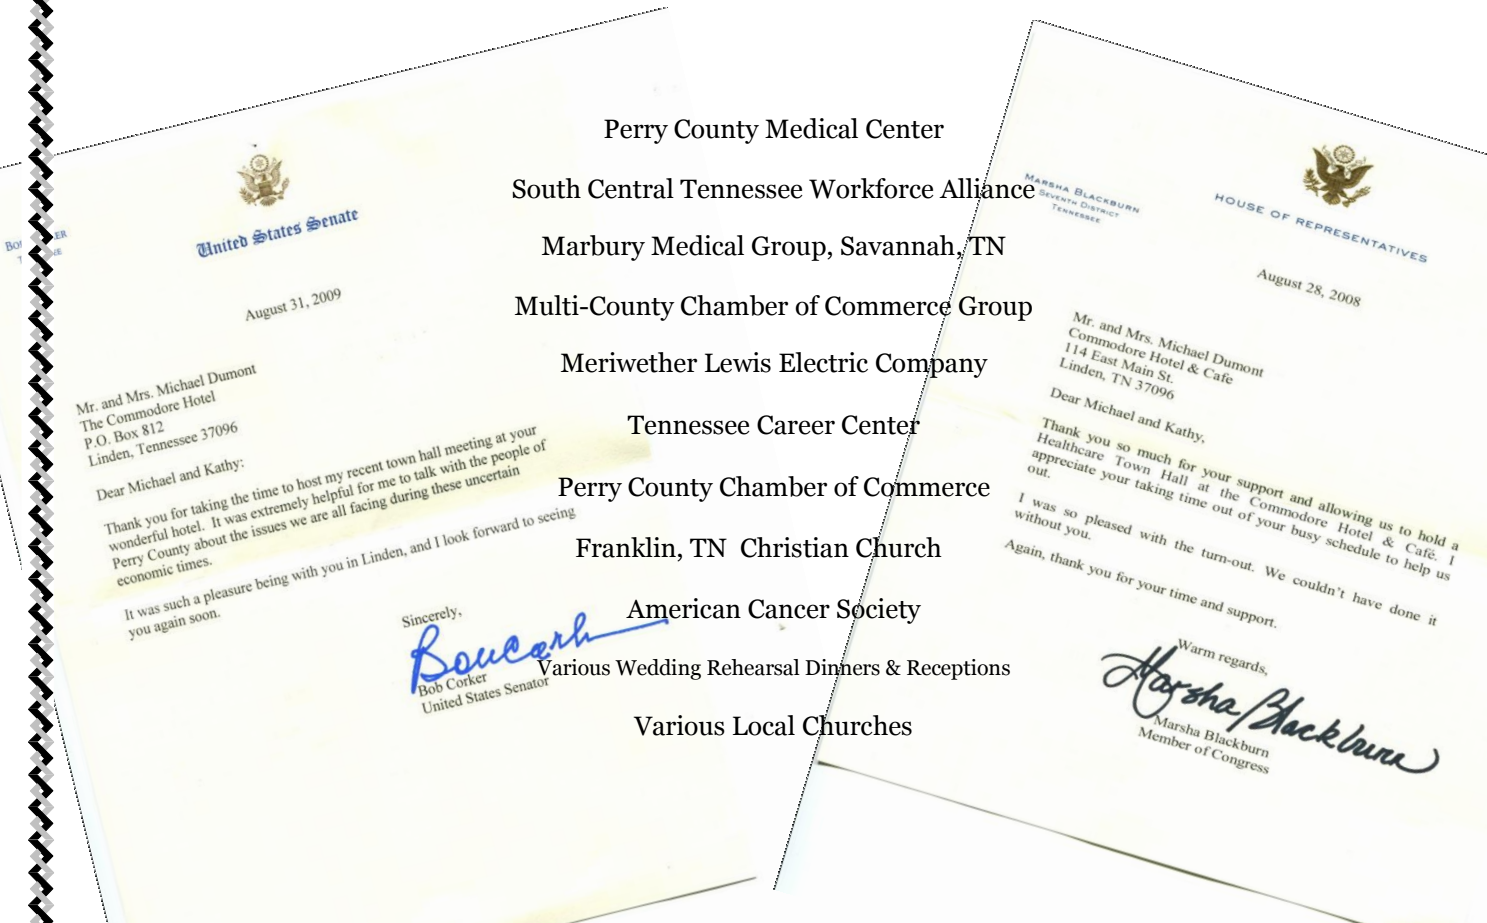 United States Senate
August 31, 2009
Mr. and Mrs. Michael Dumont
The Commodore Hotel
P.O. Box 812
Linden, Tennessee 37096
Dear Michael and Kathy:
Thank you for taking the time to host my recent town hall meeting at your
wonderful hotel. It was extremely helpful for me to talk with the people of
Perry County about the issues we are all facing during these uncertain
economic times.
It was such a pleasure being with you in Linden, and I look forward to seeing
you again soon.
Sincerely,
Bob Corker
Bob Corker
United States Senator
Perry County Medical Center
South Central Tennessee Workforce Alliance
Marbury Medical Group, Savannah, TN
Multi-County Chamber of Commerce Group
Meriwether Lewis Electric Company
Tennessee Career Center
Perry County Chamber of Commerce
Franklin, TN Christian Church
American Cancer Society
Various Wedding Rehearsal Dinners & Receptions
Various Local Churches
MARSHA BLACKBURN
SEVENTH DISTRICT
TENNESSEE
HOUSE OF REPRESENTATIVES
August 28, 2008
Mr. and Mrs. Michael Dumont
Commodore Hotel & Cafe
114 East Main St.
Linden, TN 37096
Dear Michael and Kathy,
Thank you so much for your support and allowing us to hold a
Healthcare Town Hall at the Commodore Hotel & Café. I
appreciate your taking time out of your busy schedule to help us
out.
I was so pleased with the turn-out. We couldn't have done it
without you.
Again, thank you for your time and support.
Warm regards,
Marsha Blackburn
Marsha Blackburn
Member of Congress